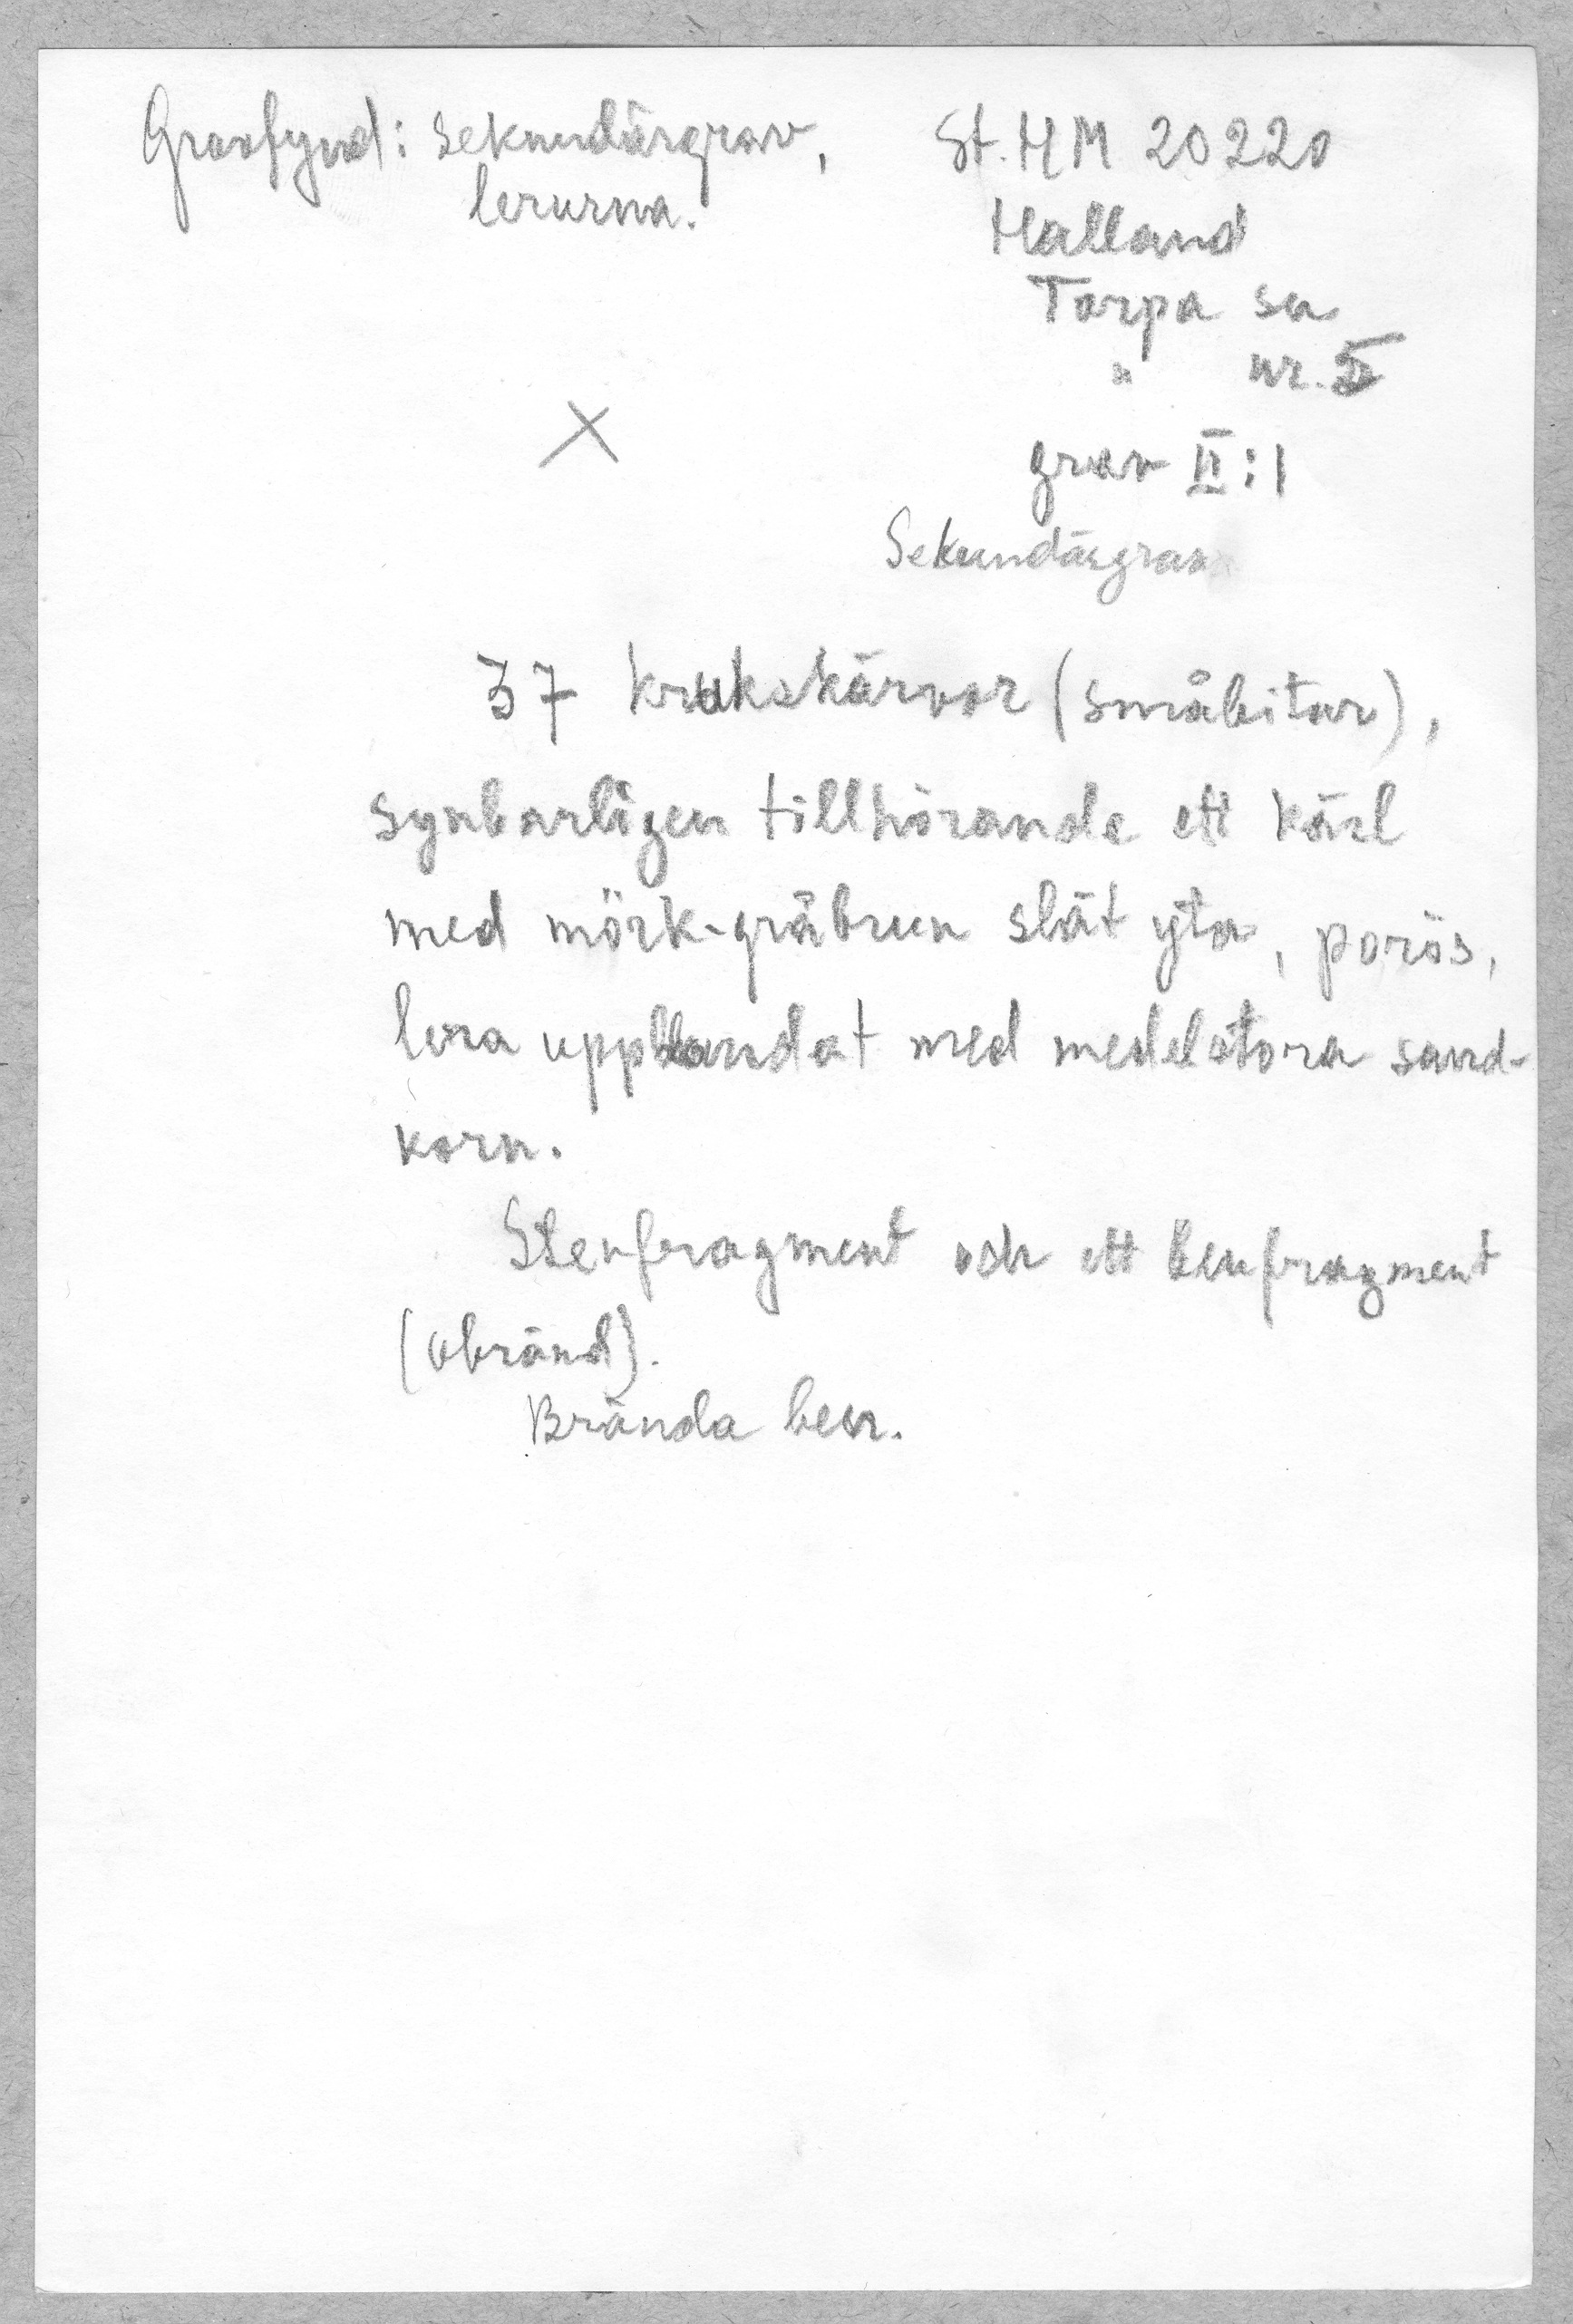 Gravfynd: Sekundärgrav,
lerurna.
St. HM 20220
Halland
Torpa sn
" nr. II
grav II:1
Sekundärgrav
X
37 krukskärvor (småbitar),
synbarligen tillhörande ett kärl
med mörk-gråbrun slät yta, porös,
lera uppblandat med medelstora sand-
korn.
Stenfragment och ett benfragment
(obränd).
Brända ben.